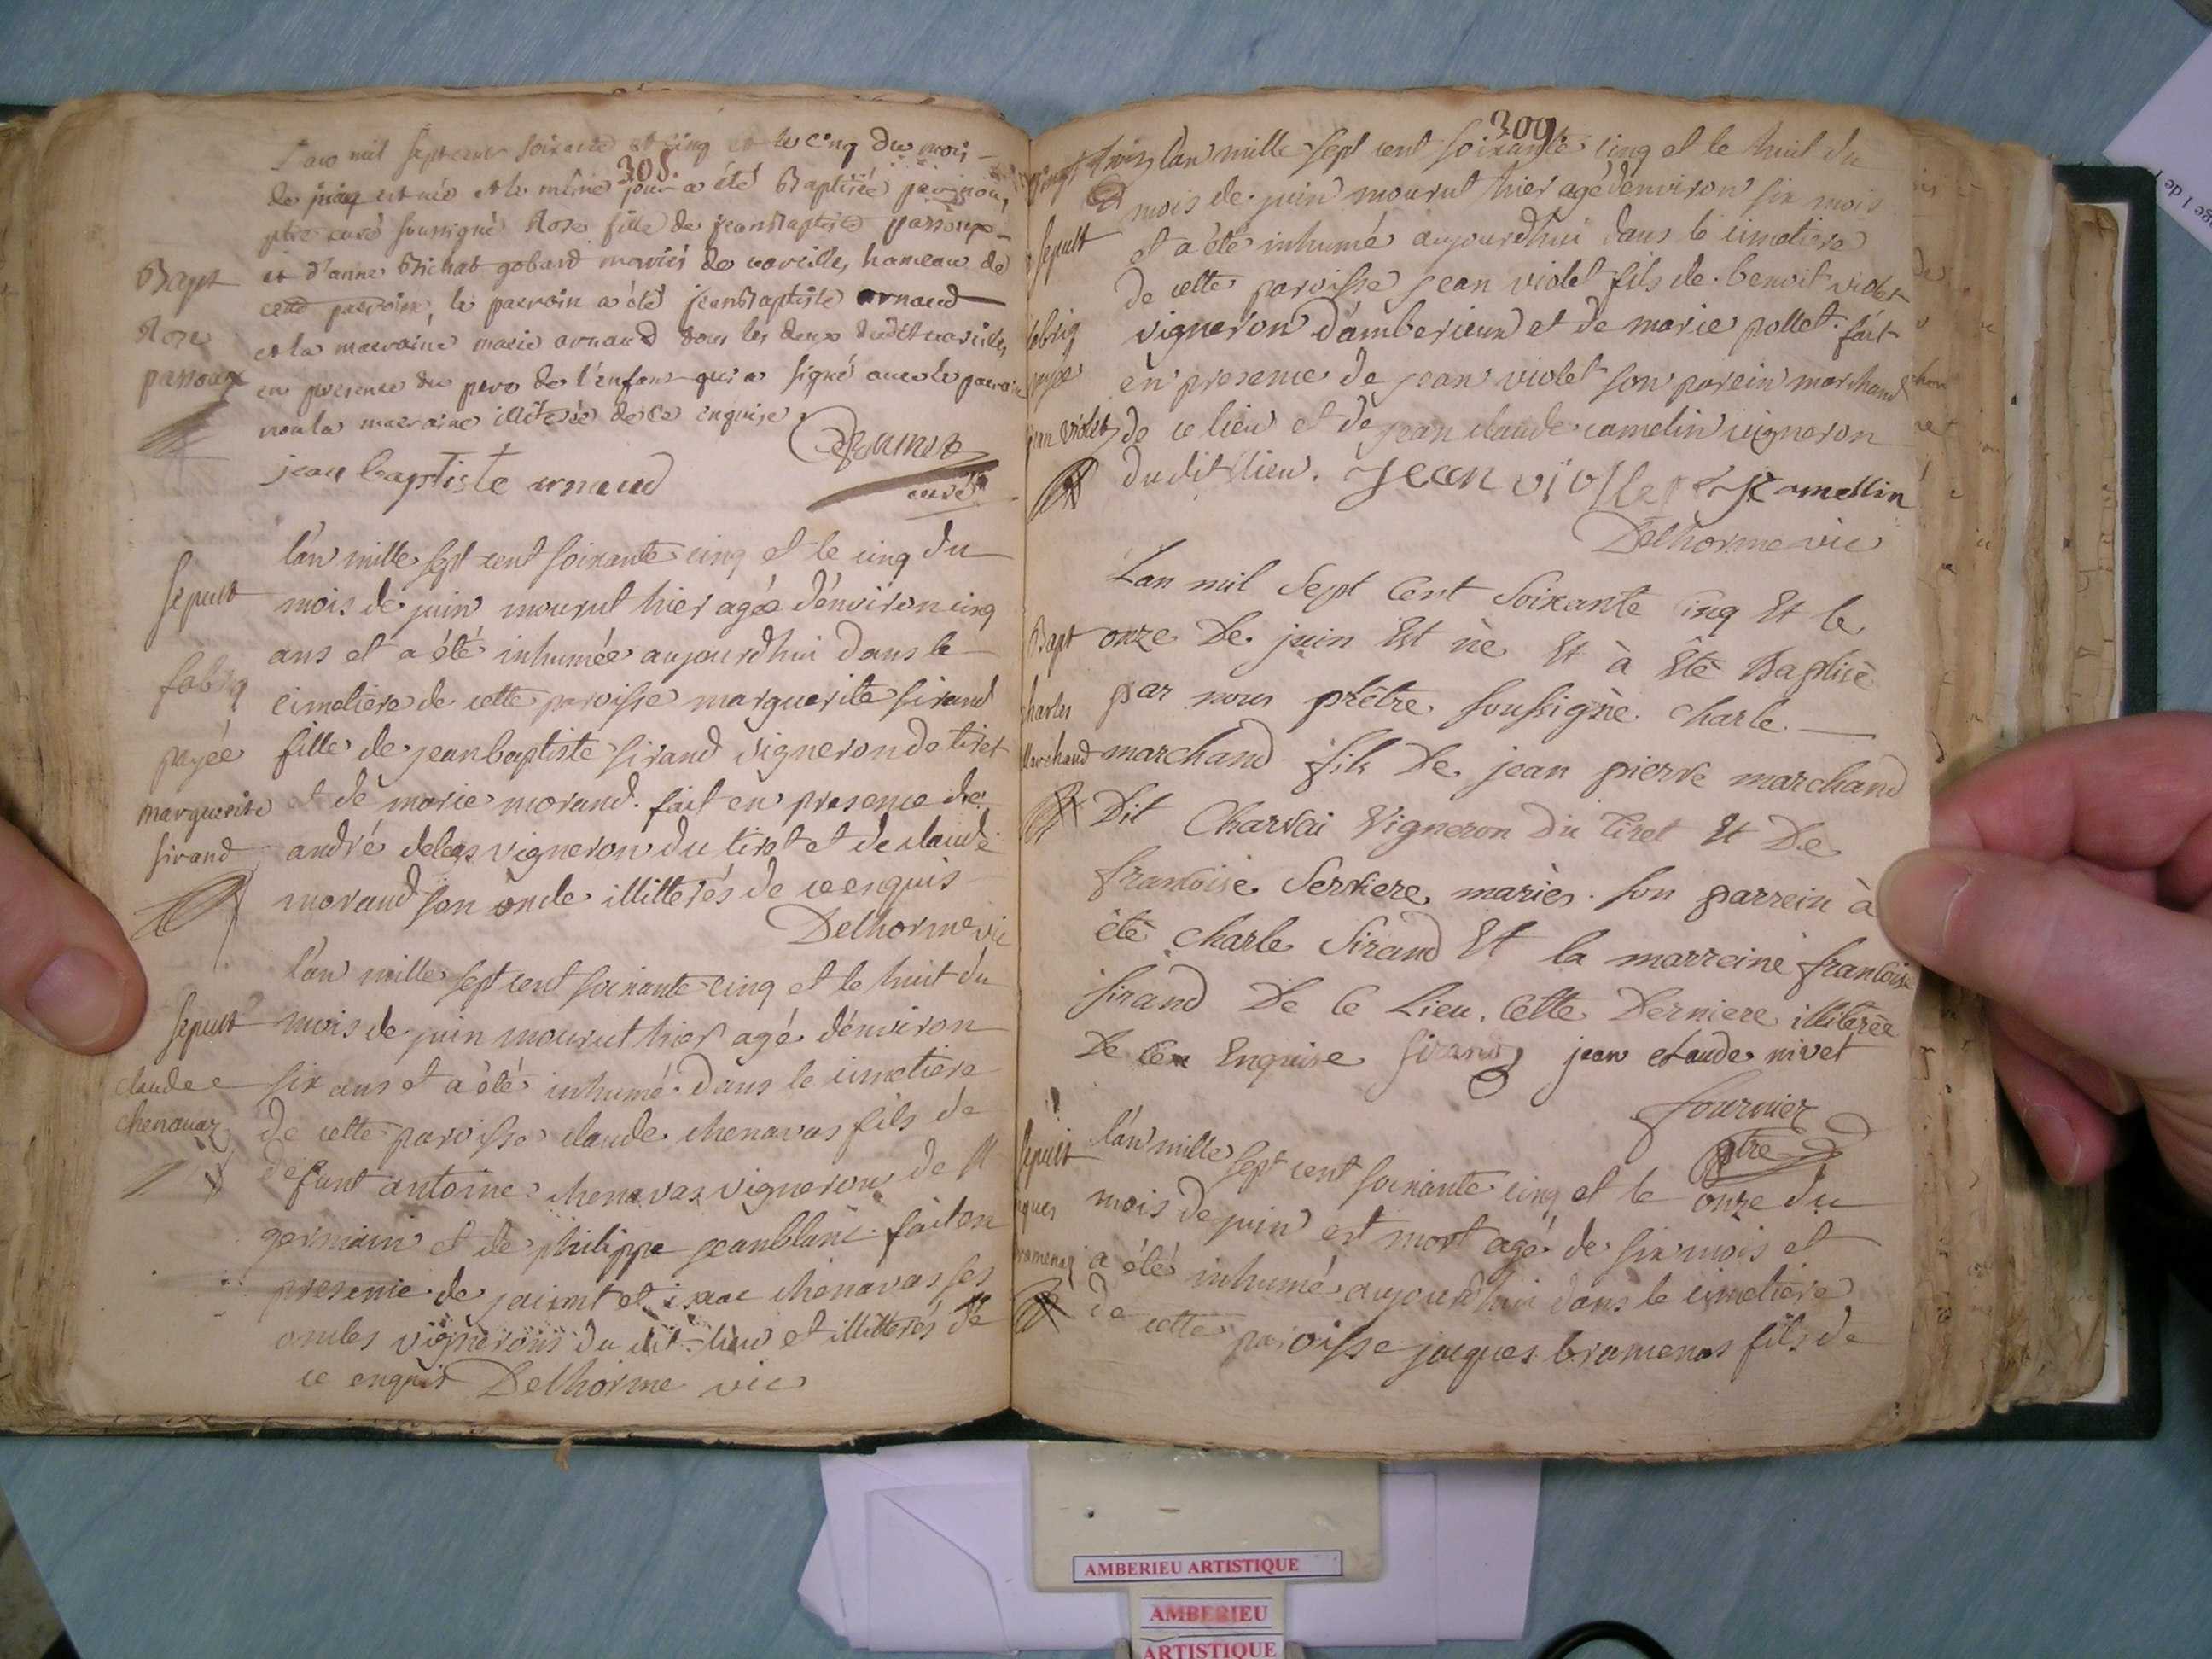 308.
L'an mil sept cent soixante et cinq et le cinq du mois
de juin est née et le même jour a été Baptisée par nous,
ptre curé soussigné Rose fille de jean Baptiste passoux
et d'anne Brichat gobard mariés de vareilles hameau de
cette paroisse, le parrain a été jean Baptiste arnaud
et la marraine marie arnaud tous les deux dudit vareilles
en presence du pere de l'enfant qui a signé avec le parrain
non la marraine illiterée de ce enquise
curé
jean baptiste arnaud
Bapt
Rose
passoux
l'an mille sept cent soixante cinq et le cinq du
mois de juin mourut hier agée d'environ cinq
ans et a été inhumée aujourdhui dans le
cimetiere de cette paroisse marguerite sirand
fille de jean baptiste sirand vigneron de tiret
et de marie morand. fait en presence de
andré delegs vigneron du tiret et de claude
morand son oncle illitterés de ce enquis
Delhorme vic
Sepult
fabriq
payée
marguerite
sirand
l'an mille sept cent soixante cinq et le huit du
mois de juin mourut hier agé d'environ
six ans et a été inhumé dans le cimetiere
de cette paroisse claude chenavas fils de
defunt antoine chenavas vigneron de st
germain et de philippe jeanblanc fait en
presence de jaiimt et isaac chenavas ses
oncles vignerons du dit lieu et illitterés de
ce enquis Delhorme vic
Sepult
claude
chenavaz
309
l'an mille sept cent soixante cinq et le huit du
mois de juin mourut hier agé d'environ six mois
et a été inhumé aujourdhui dans le cimetiere
de cette paroisse jean violet fils de benoit violet
vigneron d'amberieux et de marie pollet. fait
en presence de jean violet son parein marchand
de ce lieu et de jean claude camelin vigneron
du dit lieu. jean viollet J C amellin
Delhorme vic
Sepult
fabriq
payée
jean violet
Lan mil Sept Cent Soixante Cinq Et le
onze De juin Est nè Et à Eté Baptisè
par nous prêtre soussignè charle
marchand fils De jean pierre marchand
Dit Charvai Vigneron Du Tiret Et De
francoise Serviere mariès. son parrein à
été charle Sirand Et la marreine francoise
sirand De Ce Lieu. Cette Derniere illiterèe
De Ce Enquise sirand jean claude nivet
fournier
ptre
Bapt
charles
Marchand
l'an mille sept cent soixante cinq et le onze du
mois de juin est mort agé de six mois et
a été inhumé aujourdhui dans le cimetiere
de cette paroisse jacques bramenas fils de
Sepult
AMBERIEU ARTISTIQUE
AMBERIEU
ARTISTIQUE